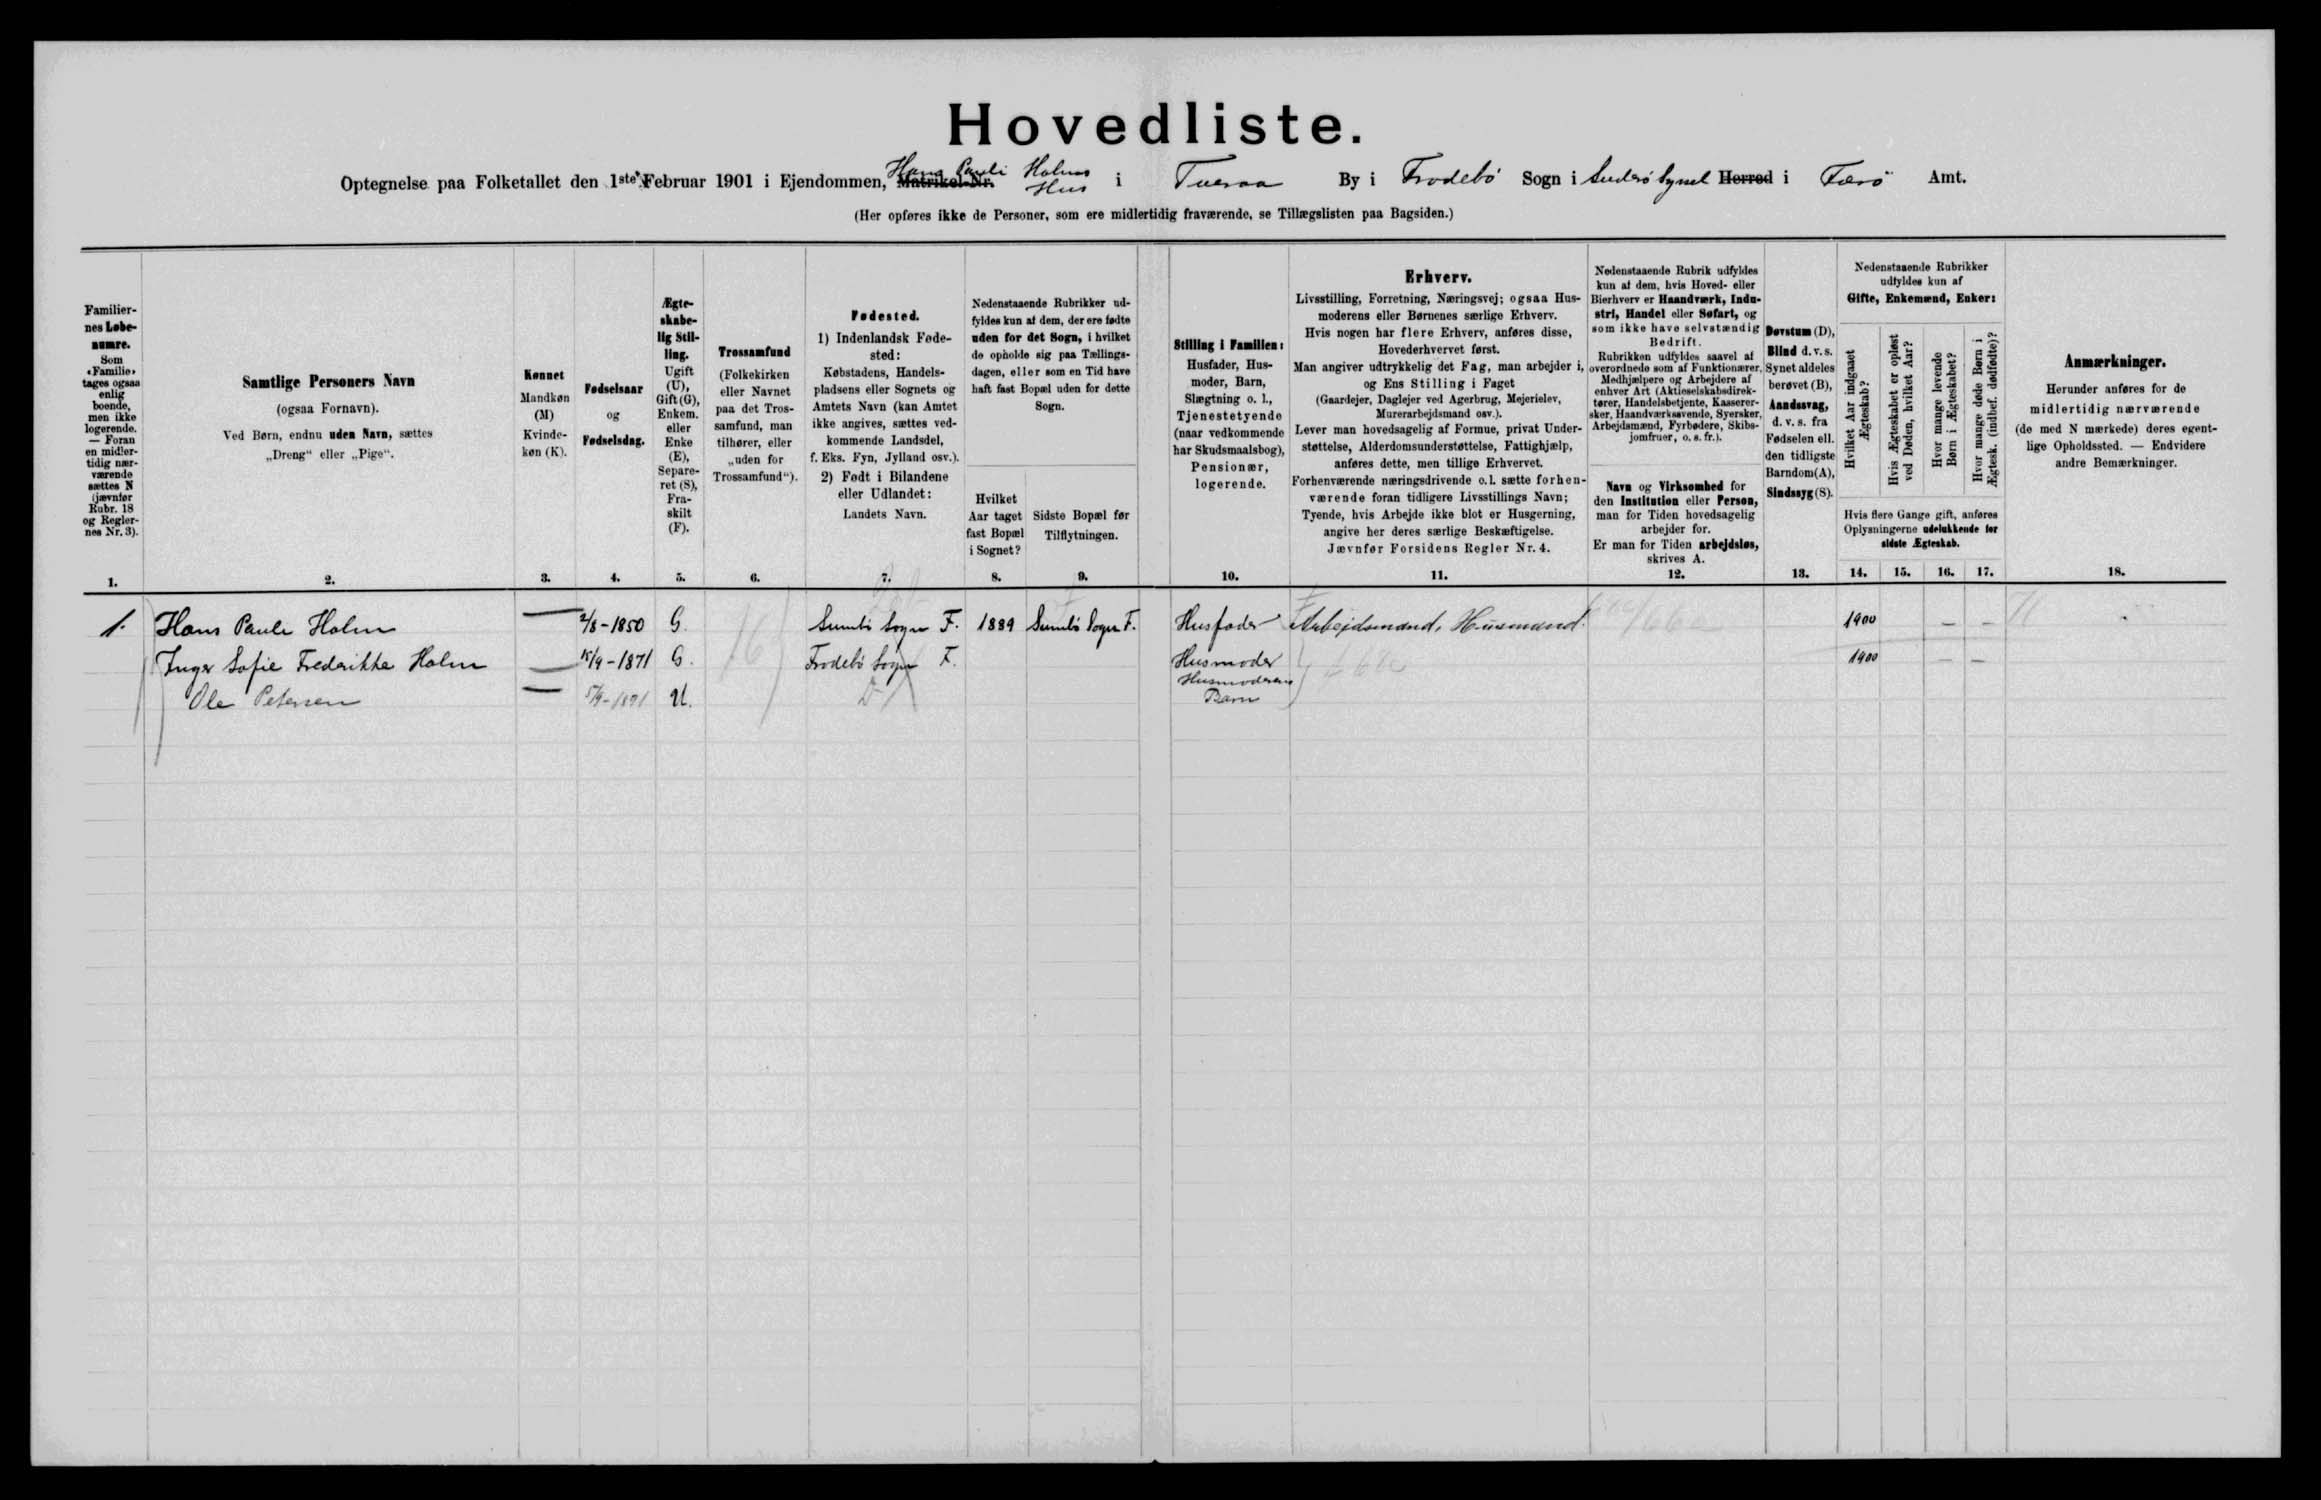 Hovedliste.
Optegnelse paa Folketallet den 1ste Februar 1901 i Ejendommen, Matrikel-Nr. Hans Pauli Holms Hus i Tveraa By i Frodebö Sogn i Suderö Syssel Herred i Færö Amt.
(Her opføres ikke de Personer, som ere midlertidig fraværende, se Tillægslisten paa Bagsiden.)
Familier-
nes Løbe-
numre.
Som
«Familie»
tages ogsaa
enlig
boende,
men ikke
logerende.
— Foran
en midler-
tidig nær-
værende
sættes N
(jævnfør
Rubr. 18
og Regler-
nes Nr. 3).
1.
Samtlige Personers Navn
(ogsaa Fornavn).
Ved Børn, endnu uden Navn, sættes
„Dreng“ eller „Pige“.
2.
Kønnet
Mandkøn
(M)
Kvinde-
køn (K).
3.
Fødselsaar
og
Fødselsdag.
4.
Ægte-
skabe-
lig Stil-
ling.
Ugift
(U),
Gift (G),
Enkem.
eller
Enke
(E),
Separe-
ret (S),
Fra-
skilt
(F).
5.
Trossamfund
(Folkekirken
eller Navnet
paa det Tros-
samfund, man
tilhører, eller
„uden for
Trossamfund“).
6.
Fødested.
1) Indenlandsk Føde-
sted:
Købstadens, Handels-
pladsens eller Sognets og
Amtets Navn (kan Amtet
ikke angives, sættes ved-
kommende Landsdel,
f. Eks. Fyn, Jylland osv.).
2) Født i Bilandene
eller Udlandet:
Landets Navn.
7.
Nedenstaaende Rubrikker ud-
fyldes kun af dem, der ere fødte
uden for det Sogn, i hvilket
de opholde sig paa Tællings-
dagen, eller som en Tid have
haft fast Bopæl uden for dette
Sogn.
Hvilket
Aar taget
fast Bopæl
i Sognet?
8.
Sidste Bopæl før
Tilflytningen.
9.
Stilling i Familien:
Husfader, Hus-
moder, Barn,
Slægtning o. l.,
Tjenestetyende
(naar vedkommende
har Skudsmaalsbog),
Pensionær,
logerende.
10.
Erhverv.
Livsstilling, Forretning, Næringsvej; ogsaa Hus-
moderens eller Børnenes særlige Erhverv.
Hvis nogen har flere Erhverv, anføres disse,
Hovederhvervet først.
Man angiver udtrykkelig det Fag, man arbejder i,
og Ens Stilling i Faget
(Gaardejer, Daglejer ved Agerbrug, Mejerielev,
Murerarbejdsmand osv.).
Lever man hovedsagelig af Formue, privat Under-
støttelse, Alderdomsunderstøttelse, Fattighjælp,
anføres dette, men tillige Erhvervet.
Forhenværende næringsdrivende o. l. sætte forhen-
værende foran tidligere Livsstillings Navn;
Tyende, hvis Arbejde ikke blot er Husgerning,
angive her deres særlige Beskæftigelse.
Jævnfør Forsidens Regler Nr. 4.
11.
Nedenstaaende Rubrik udfyldes
kun af dem, hvis Hoved- eller
Bierhverv er Haandværk, Indu-
stri, Handel eller Søfart, og
som ikke have selvstændig
Bedrift.
Rubrikken udfyldes saavel af
overordnede som af Funktionærer,
Medhjælpere og Arbejdere af
enhver Art (Aktieselskabsdirek-
tører, Handelsbetjente, Kasserer-
sker, Haandværkssvende, Syersker,
Arbejdsmænd, Fyrbødere, Skibs-
jomfruer, o. s. fr.).
Navn og Virksomhed for
den Institution eller Person,
man for Tiden hovedsagelig
arbejder for.
Er man for Tiden arbejdsløs,
skrives A.
12.
Døvstum (D),
Blind d. v. s.
Synet aldeles
berøvet (B),
Aandssvag,
d. v. s. fra
Fødselen ell.
den tidligste
Barndom (A),
Sindssyg (S).
13.
Nedenstaaende Rubrikker
udfyldes kun af
Gifte, Enkemænd, Enker:
Hvilket Aar indgaaet
Ægteskab?
Hvis Ægteskabet er opløst
ved Døden, hvilket Aar?
Hvor mange levende
Børn i Ægteskabet?
Hvor mange døde Børn i
Ægtesk. (indbef. dødfødte)?
Hvis flere Gange gift, anføres
Oplysningerne udelukkende for
sidste Ægteskab.
14. 15. 16. 17.
Anmærkninger.
Herunder anføres for de
midlertidig nærværende
(de med N mærkede) deres egent-
lige Opholdssted. — Endvidere
andre Bemærkninger.
18.
1. Hans Paule Holm — 2/8-1850 G. Sumbö Sogn F. 1889 Sumbö Sogn F. Husfader Arbejdsmand, Husmand. 1900 — —
Inger Sofie Frederikke Holm — 15/9-1871 G. Frodebö Sogn F. Husmoder 1900 — —
Ole Petersen — 5/9-1891 U. Husmoderens Barn